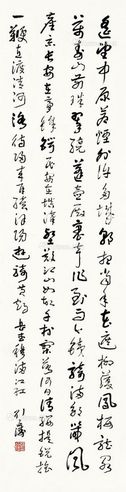 遙望中原荒煙外許多城郭想當年花遮柳護鳳樓龍閣
萬歲山前珠翠繞蓬壺殿裏笙歌作到而今鐵騎滿郊畿風
塵惡兵安在膏鋒鍔民安在填溝壑嘆江山如故千村寥落何日請纓提銳旅
一鞭直渡清河洛却歸來再續漢陽遊騎黃鶴 岳飛詞滿江紅